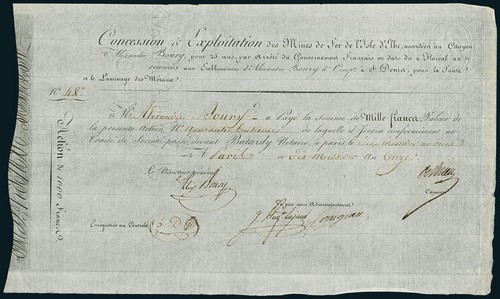 Concession & Exploitation des Mines de Fer de l'Isle d'Elbe, accordées au Citoyen
Alexandre Boury, pour 25 ans, par Arrêté du Gouvernement Français en date du 9 Floréal an 11
réunies aux Etablissements d'Alexandre Boury & Compie. à St. Denis, pour la Fonte
et le Laminage des Métaux.
No. 48
M. Alexandre Boury a Payé la somme de Mille francs Valeur de
la présente Action No. quarante huitième de laquelle il Jouira conformément au
de Société passé devant Batardy Notaire, à paris le Messidor an onze
A Paris le Six Messidor An Onze
Le Directeur général
Alex Boury
Par nous Administrateurs
Caissier
Enregistrée au Contrôle
Action de 1000 Francs